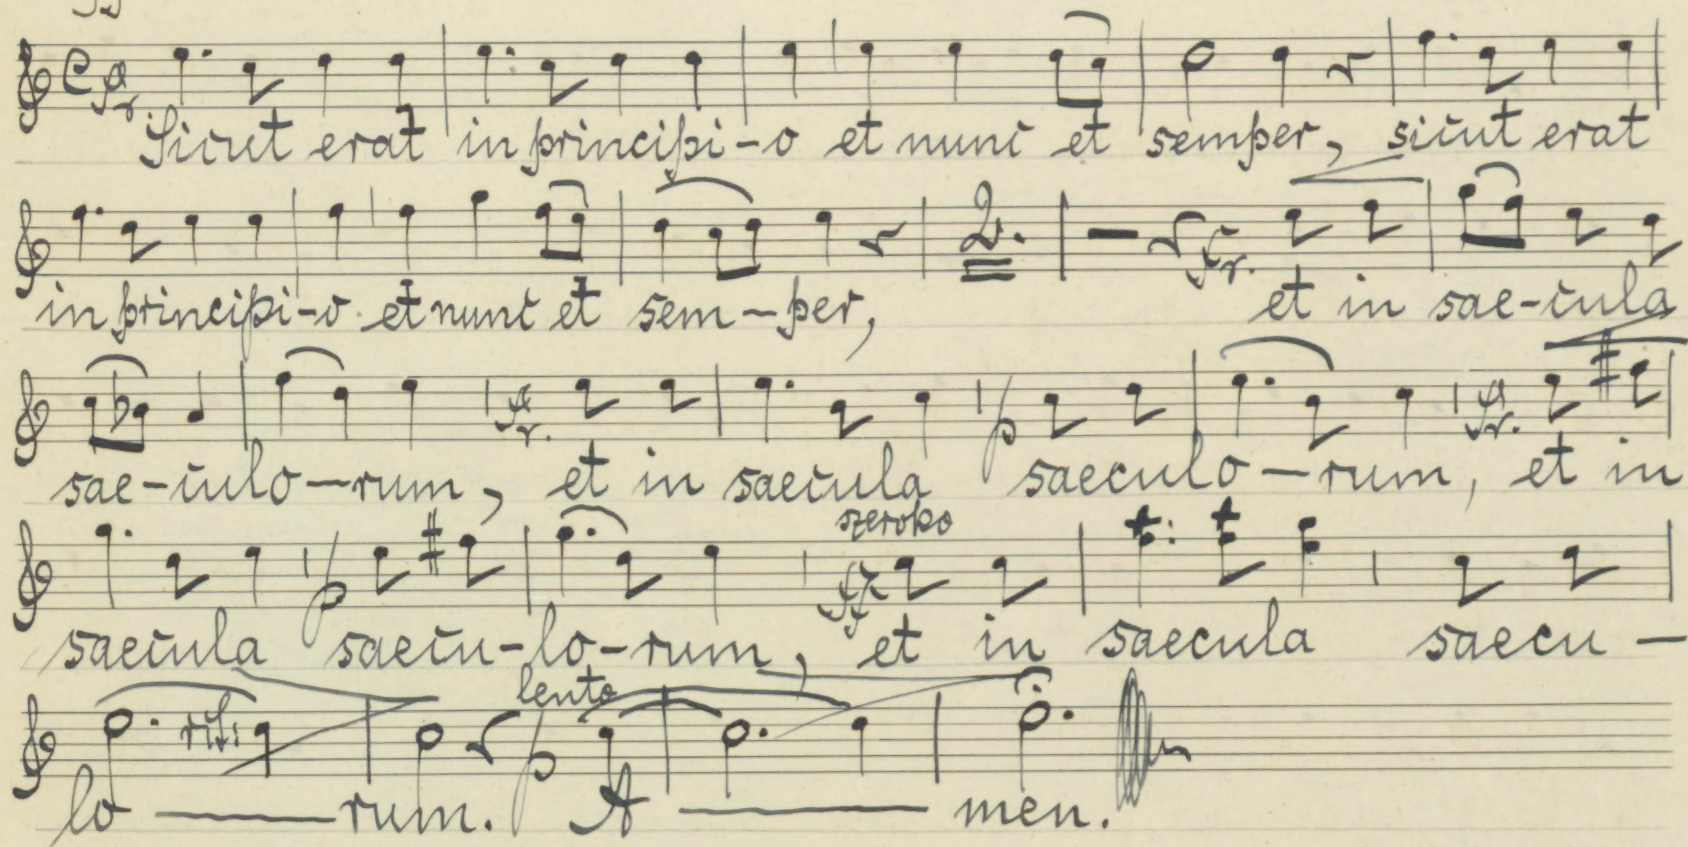 Sicut erat in principi-o et nunc et semper, sicut erat
in principi-o et nunc et sem-per, 2. et in sae-cula
sae-culo-rum, et in saecula saeculo-rum, et in
szeroko
saecula saecu-lo-rum, et in saecula saecu-
lento
rit:
lo-rum. A-men.